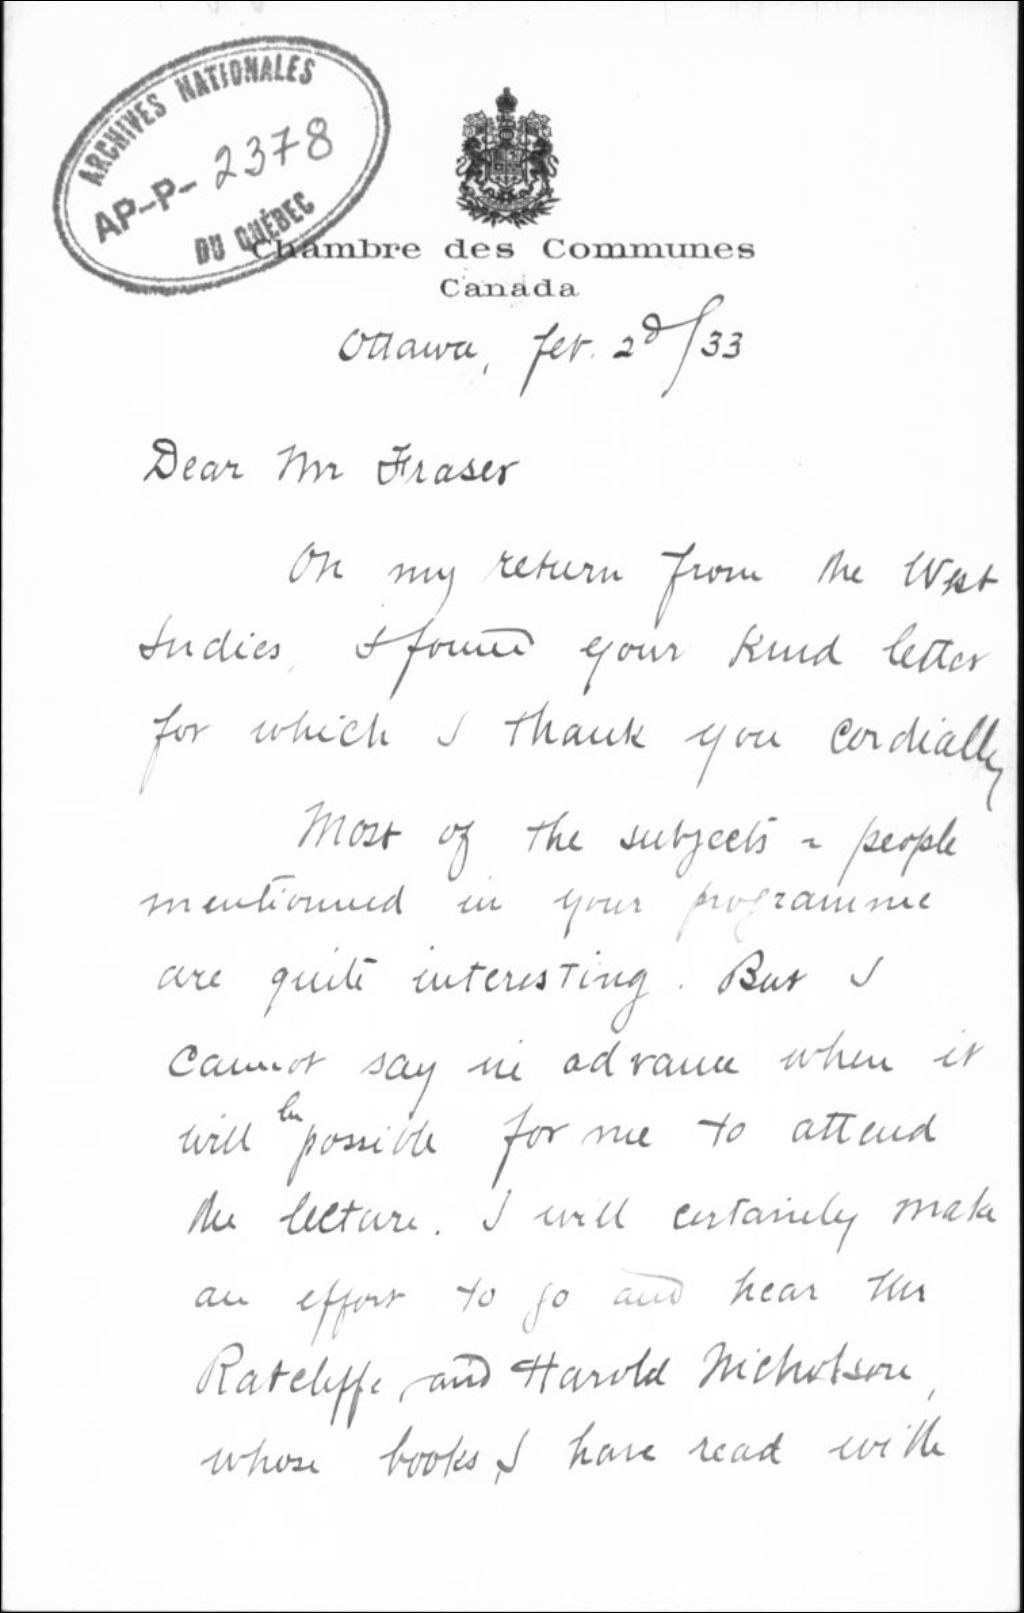 ARCHIVES NATIONALES
AP-P- 2378
DU QUÉBEC
Chambre des Communes
Canada
Ottawa, fev. 2d/33
Dear Mr Fraser
On my return from the West
Indies, I found your kind letter
for which I thank you cordially
Most of the subjects & people
mentionned in your programme
are quite interesting. But I
cannot say in advance when it
will be possible for me to attend
the lecture. I will certainely make
an effort to go and hear Mr
Ratcliffe, and Harold Nicholson,
whose books, I have read with